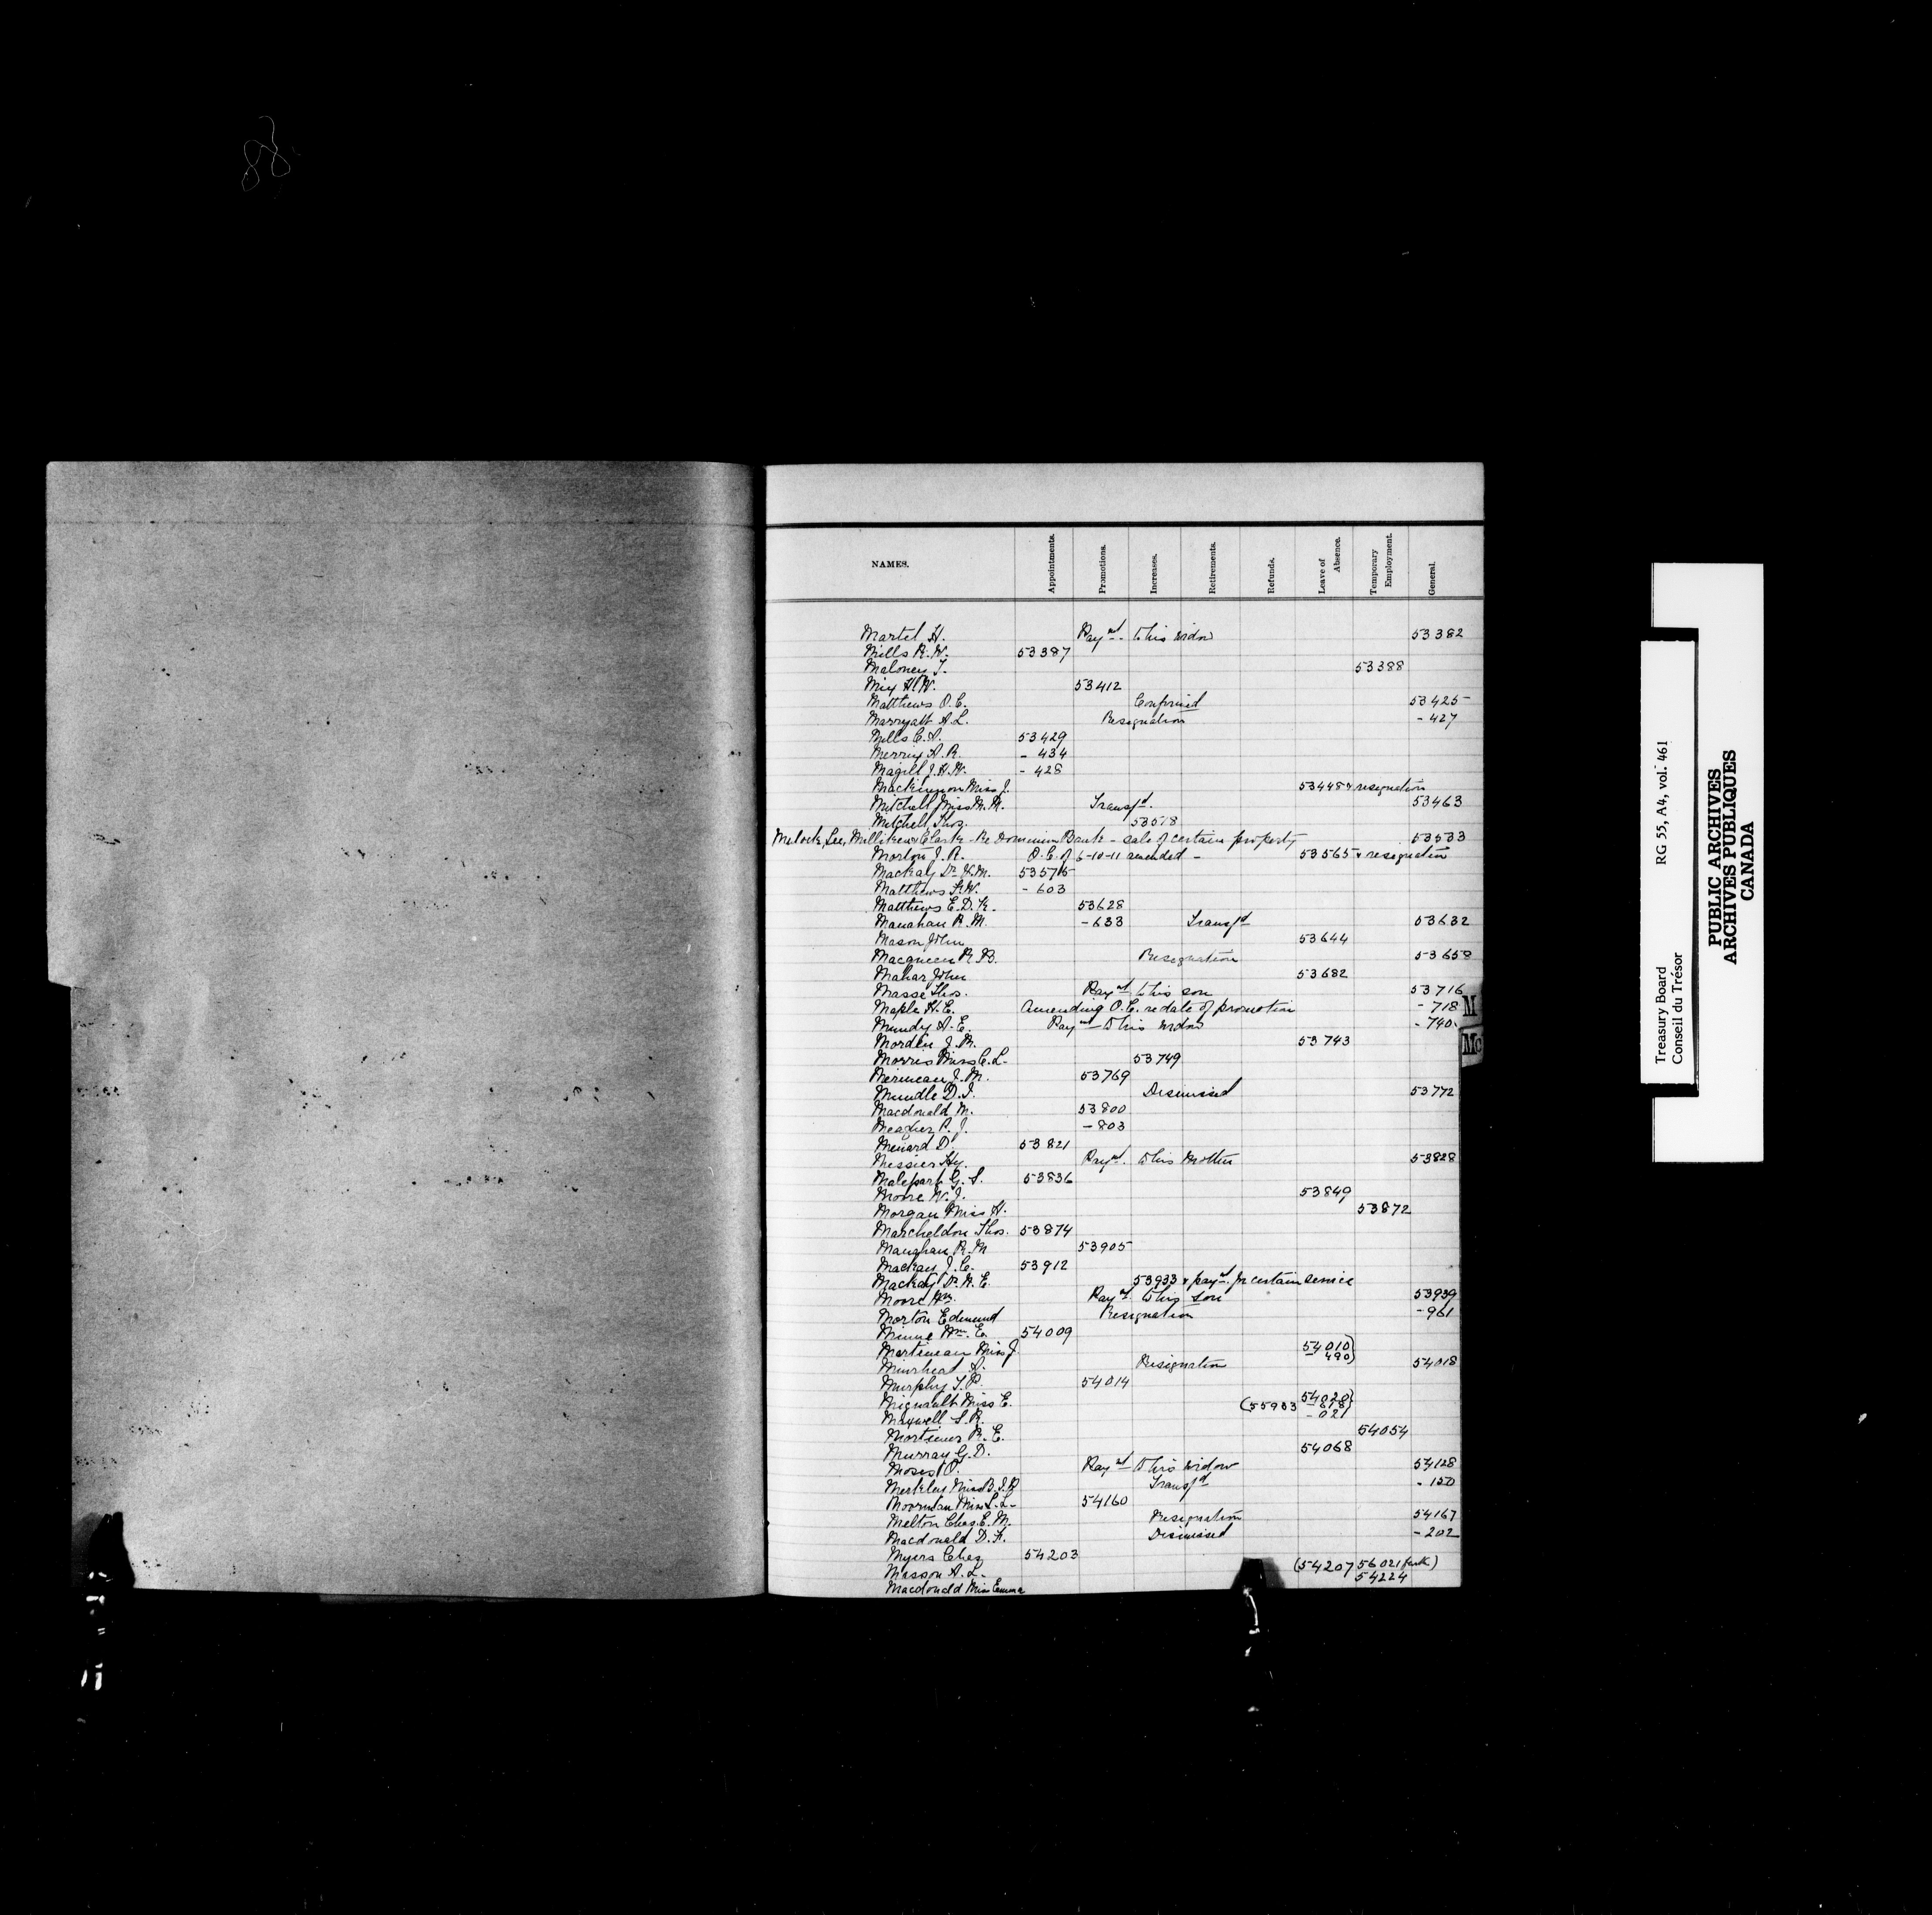 88
NAMES. Appointments. Promotions. Increases. Retirements. Refunds. Leave of Absence. Temporary Employment. General.
Martel H. Paymt. to his widow 53382
Mills R. W. 53387
Maloney T. 53388
Mix H. W. 53412
Matthews O. C. Confirmed 53425
Marryatt A. L. Resignation - 427
Mills C. A. 53429
Merrix A. R. - 434
Magill J. H. W. - 428
Mackinnon Miss J. 53448 & resignation
Mitchell Miss M. M. Transfd. 53463
Mitchell Thos. 53518
Mulock, Lee, Milliken & Clark - Re Dominion Bank - sale of certain property 53533
Morton J. R. O.C. of 6-10-11 amended - 53565 & resignation
Mackay Dr. K. M. 53575
Matthews F. W. - 603
Matthews E. D. K. 53628
Manahan R. M. - 633 Transfd 53632
Mason John 53644
Macqueen R. B. Resignation 53658
Mahar John 53682
Masse Thos. Paymt. to his son 53716
Maple H. E. Amending O.C. re date of promotion - 718
Mundy A. E. Paymt to his widow - 740
Morden J. M. 53743
Morris Miss C. L. 53749
Merineau J. M. 53769
Mundle D. J. Dismissed 53772
Macdonald M. 53800
Meagher P. J. - 803
Menard D. 53821
Messier Hy. Paymt. to his mother 53828
Malepart G. S. 53836
Moore W. J. 53849
Morgan Miss H. 53872
Marcheldon Thos. 53874
Maughan R. M 53905
Mackay J. C. 53912
Mackay Dr. N. E. 53933 & paymt. for certain service
Moore Wm. Paymt. to his son 53939
Morton Edmund Resignation - 961
Minne Wm. E. 54009
Martineau Miss J. 54010 490
Muirhead A. Resignation 54018
Murphy T. P. 54014
Mignault Miss E. (55933 54020 818)
Maxwell S. R. - 021
Mortimer R. E. 54054
Murray G. D. 54068
Moses O. Paymt to his widow 54128
Merkley Miss B. I. R Transfd - 150
Moorman Miss L. L. 54160
Melton Chas. E. M. Resignation 54167
Macdonald D. F. Dismissed - 202
Myers Chas 54203
Masson A. L. (54207 56021 furth)
Macdonald Miss Emma 54224
M
Mc
Treasury Board RG 55, A4, vol. 461
Conseil du Trésor
PUBLIC ARCHIVES
ARCHIVES PUBLIQUES
CANADA